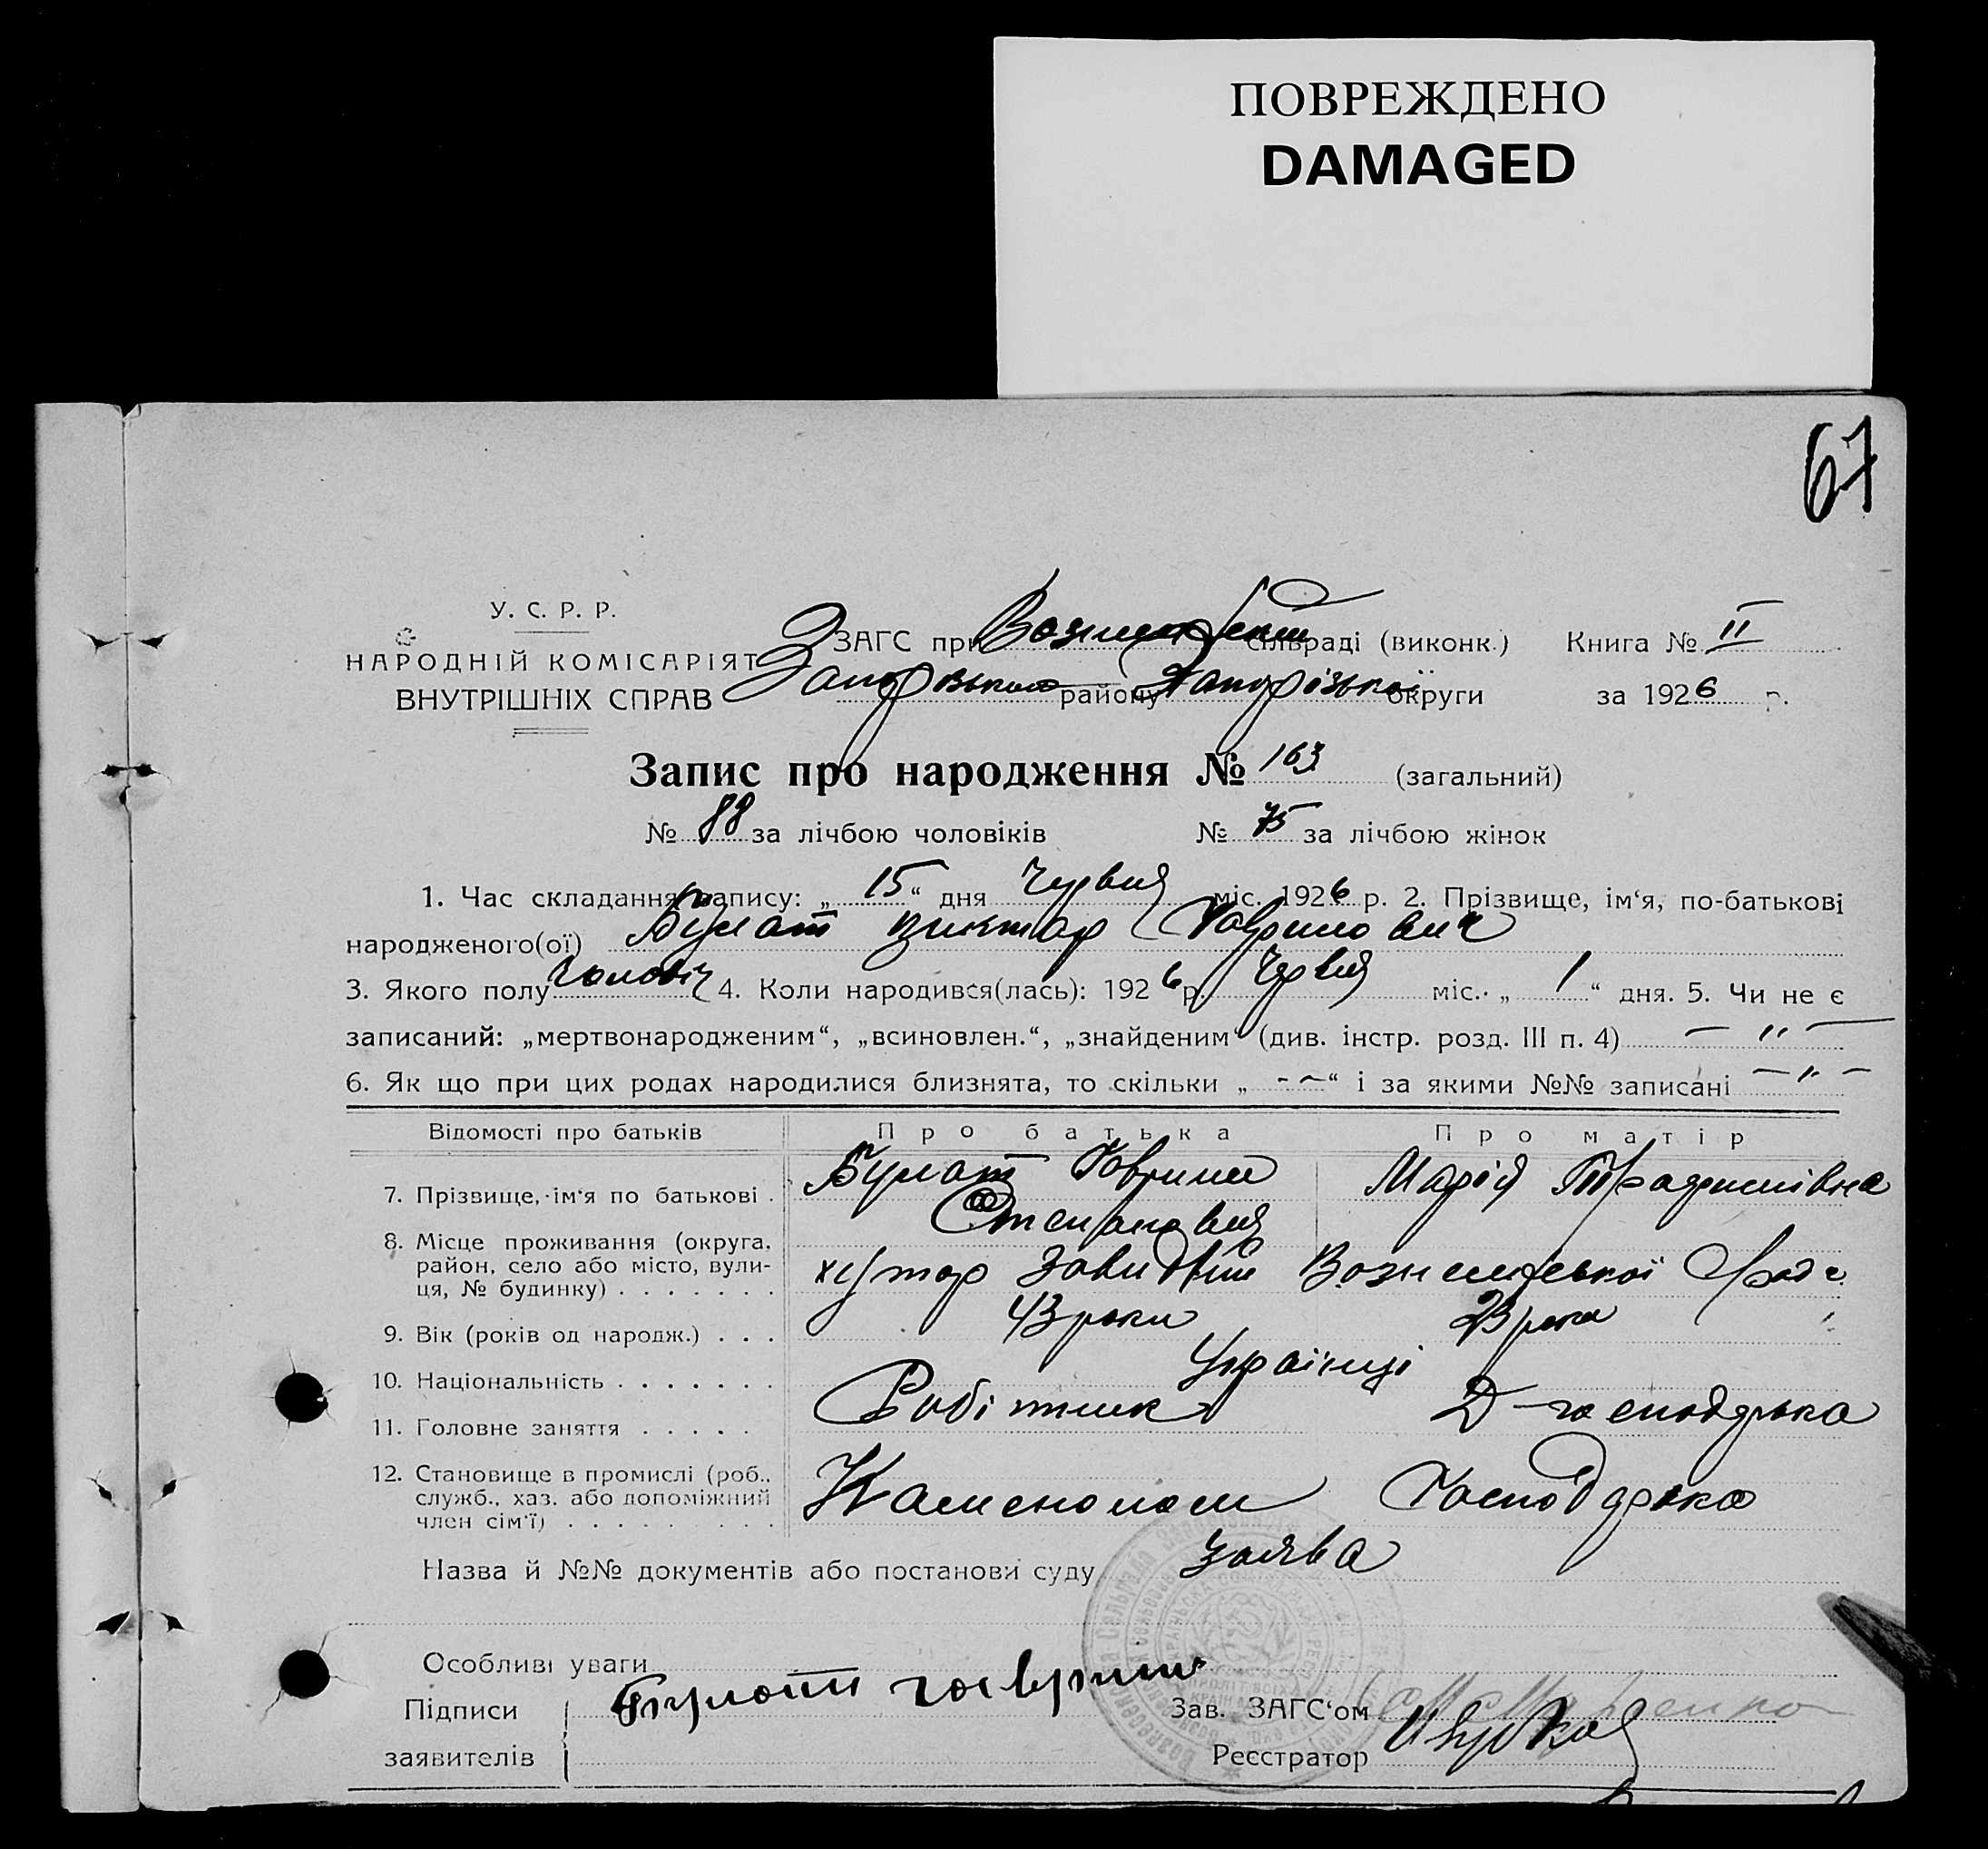 ПОВРЕЖДЕНО
DAMAGED
67
У. С. Р. Р.
НАРОДНІЙ КОМІСАРІЯТ
ВНУТРІШНІХ СПРАВ
ЗАГС при сільраді (виконк.) Книга № II
району Запорізької округи за 1926 р.
Запис про народження № 163 (загальний)
№ 88 за лічбою чоловіків № 75 за лічбою жінок
1. Час складання запису: „15“ дня Червня міс. 1926 р. 2. Прізвище, ім‘я, по-батькові
народженого(ої) Булат Виктор Гаврилович
3. Якого полу чоловіч 4. Коли народився(лась): 1926 р. Червня міс. „1“ дня. 5. Чи не є
записаний: „мертвонародженим“, „всиновлен.“, „знайденим“ (див. інстр. розд. III п. 4) — „ —
6. Як що при цих родах народилися близнята, то скільки „ - ~ “ і за якими №№ записані — „ —
Відомості про батьків Про батька Про матір
7. Прізвище, ім‘я по батькові . Булат Гаврило Марія
Степанович
8. Місце проживання (округа, район, село або місто, вулиця, № будинку) . . . . . . . хутор
9. Вік (років од народж.) . . . 43 роки 23 роки
10. Національність . . . . . . . Українці
11. Головне заняття . . . . . Робітник Д-господарка
12. Становище в промислі (роб., служб., хаз. або допоміжний член сім‘ї) . . . . . . . . Каменолом Господарка
Назва й №№ документів або постанови суду заява
Особливі уваги
Підписи Булат Гаврило Зав. ЗАГС‘ом
заявителів Реєстратор